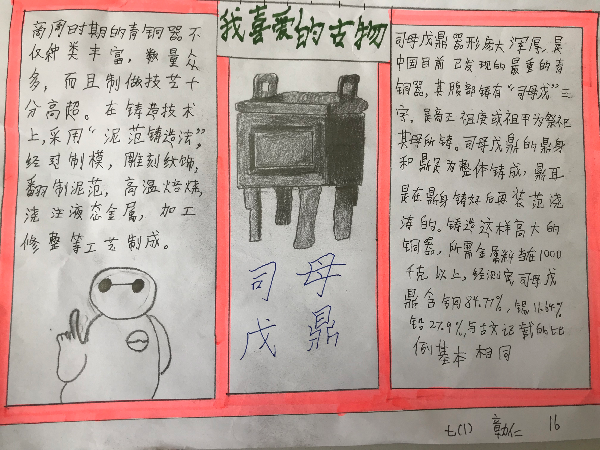 我喜爱的古物
商周时期的青铜器不
仅种类丰富，数量众
多，而且制做技艺十
分高超。在铸造技术
上，采用“泥范铸造法”，
经过制模，雕刻纹饰，
翻制泥范，高温焙烧，
浇注液态金属，加工
修整等工艺制成。
司母
戊鼎
司母戊鼎器形庞大浑厚，是
中国目前已发现的最重的青
铜器，其腹部铸有“司母戊”三
字，是商王祖庚或祖甲为祭祀
其母所铸。司母戊鼎的鼎身
和鼎足为整体铸成，鼎耳
是在鼎身铸好后再装范浇
涛的。铸造这样高大的
铜器，所需金属料当在1000
千克以上，经测定司母戊
鼎含铜84.77%，锡11.64%
铅27.9%，与古文记载的比
例基本相同
七(1) 章仁 16